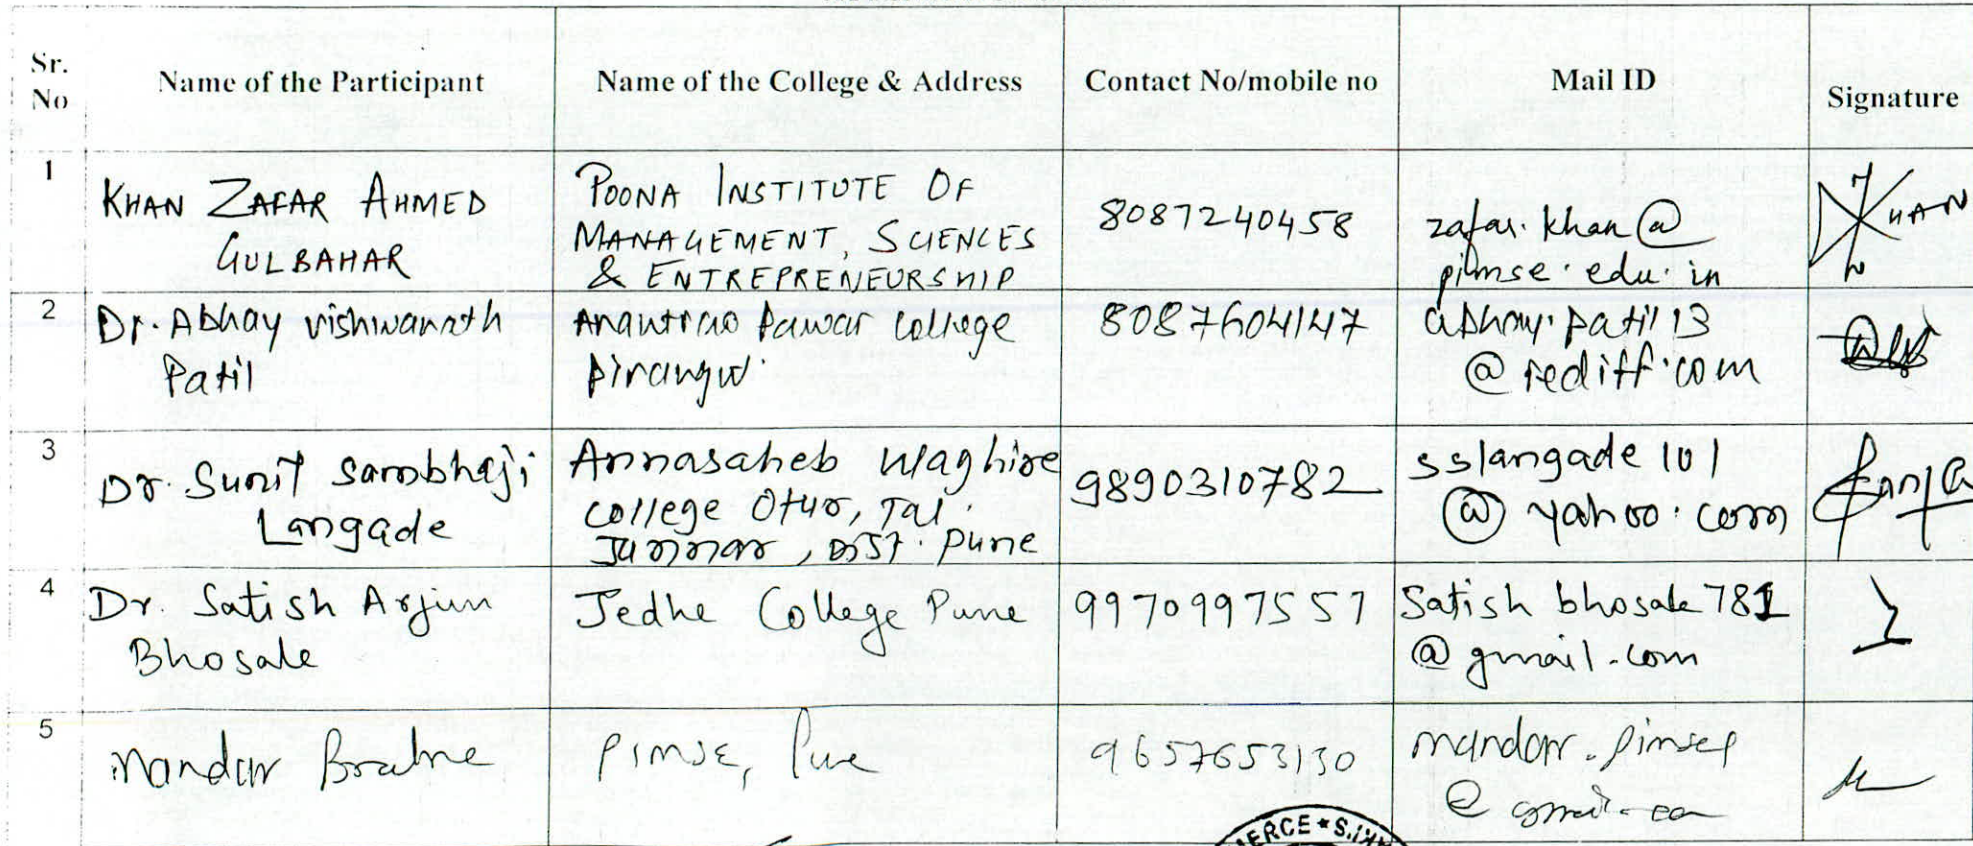 Sr. No
Name of the Participant
Name of the College & Address
Contact No/mobile no
Mail ID
Signature
1
KHAN ZAFAR AHMED
GULBAHAR
POONA INSTITUTE OF
MANAGEMENT, SCIENCES
& ENTREPRENEURSHIP
8087240458
zafar.khan@
pimse.edu.in
KHAN
2
Dr. Abhay vishwanath
Patil
Anantrao Pawar College
Pirangut
8087604147
abhay.patil13
@rediff.com
3
Dr. Sunil Sambhaji
Langade
Annasaheb Waghire
College Otur, Tal.
Junnar, Dist. Pune
9890310782
sslangade101
@yahoo.com
4
Dr. Satish Arjun
Bhosale
Jedhe College Pune
9970997557
Satishbhosale781
@gmail.com
5
Mandar
PIMSE, Pune
9657653130
mandar.pimsep
ERCE * S.